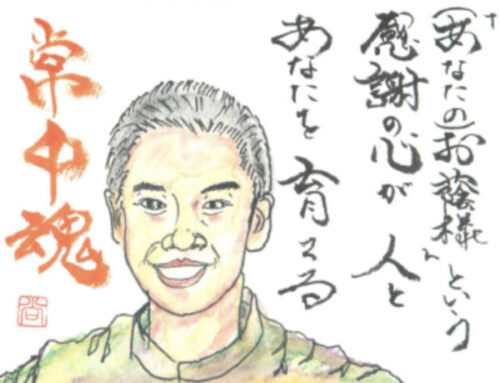 (あなたの)お蔭様という
感謝の心が 人と
あなたを 育てる
常中魂